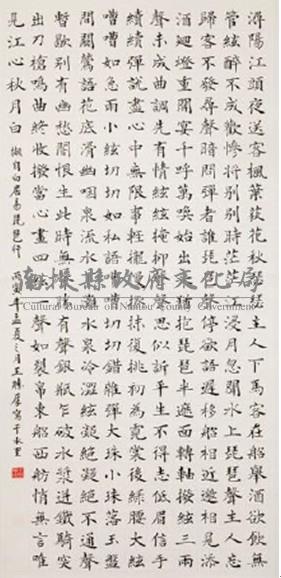 潯陽江頭夜送客楓葉荻花秋瑟瑟主人下馬客在船舉酒欲飲無
管絃醉不成歡慘將別別時茫茫江浸月忽聞水上琵琶聲主人忘
歸客不發尋聲暗問彈者誰琵琶聲停欲語遲移船相近邀相見添
酒迴燈重開宴千呼萬喚始出來猶抱琵琶半遮面轉軸撥絃三兩
聲未成曲調先有情絃絃掩抑聲聲思似訴平生不得志低眉信手
續續彈說盡心中無限事輕攏慢撚抹復挑初為霓裳後綠腰大絃
嘈嘈如急雨小絃切切如私語嘈嘈切切錯雜彈大珠小珠落玉盤
間關鶯語花底滑幽咽泉流水下灘水泉冷澀絃凝絕凝絕不通聲
暫歇別有幽愁闇恨生此時無聲勝有聲銀瓶乍破水漿迸鐵騎突
出刀槍鳴曲終收撥當心畫四絃一聲如裂帛東船西舫悄無言唯
見江心秋月白 白居易琵琶行 年孟夏之月王
南投縣政府文化局
Cultural Bureau of Nantou County Government